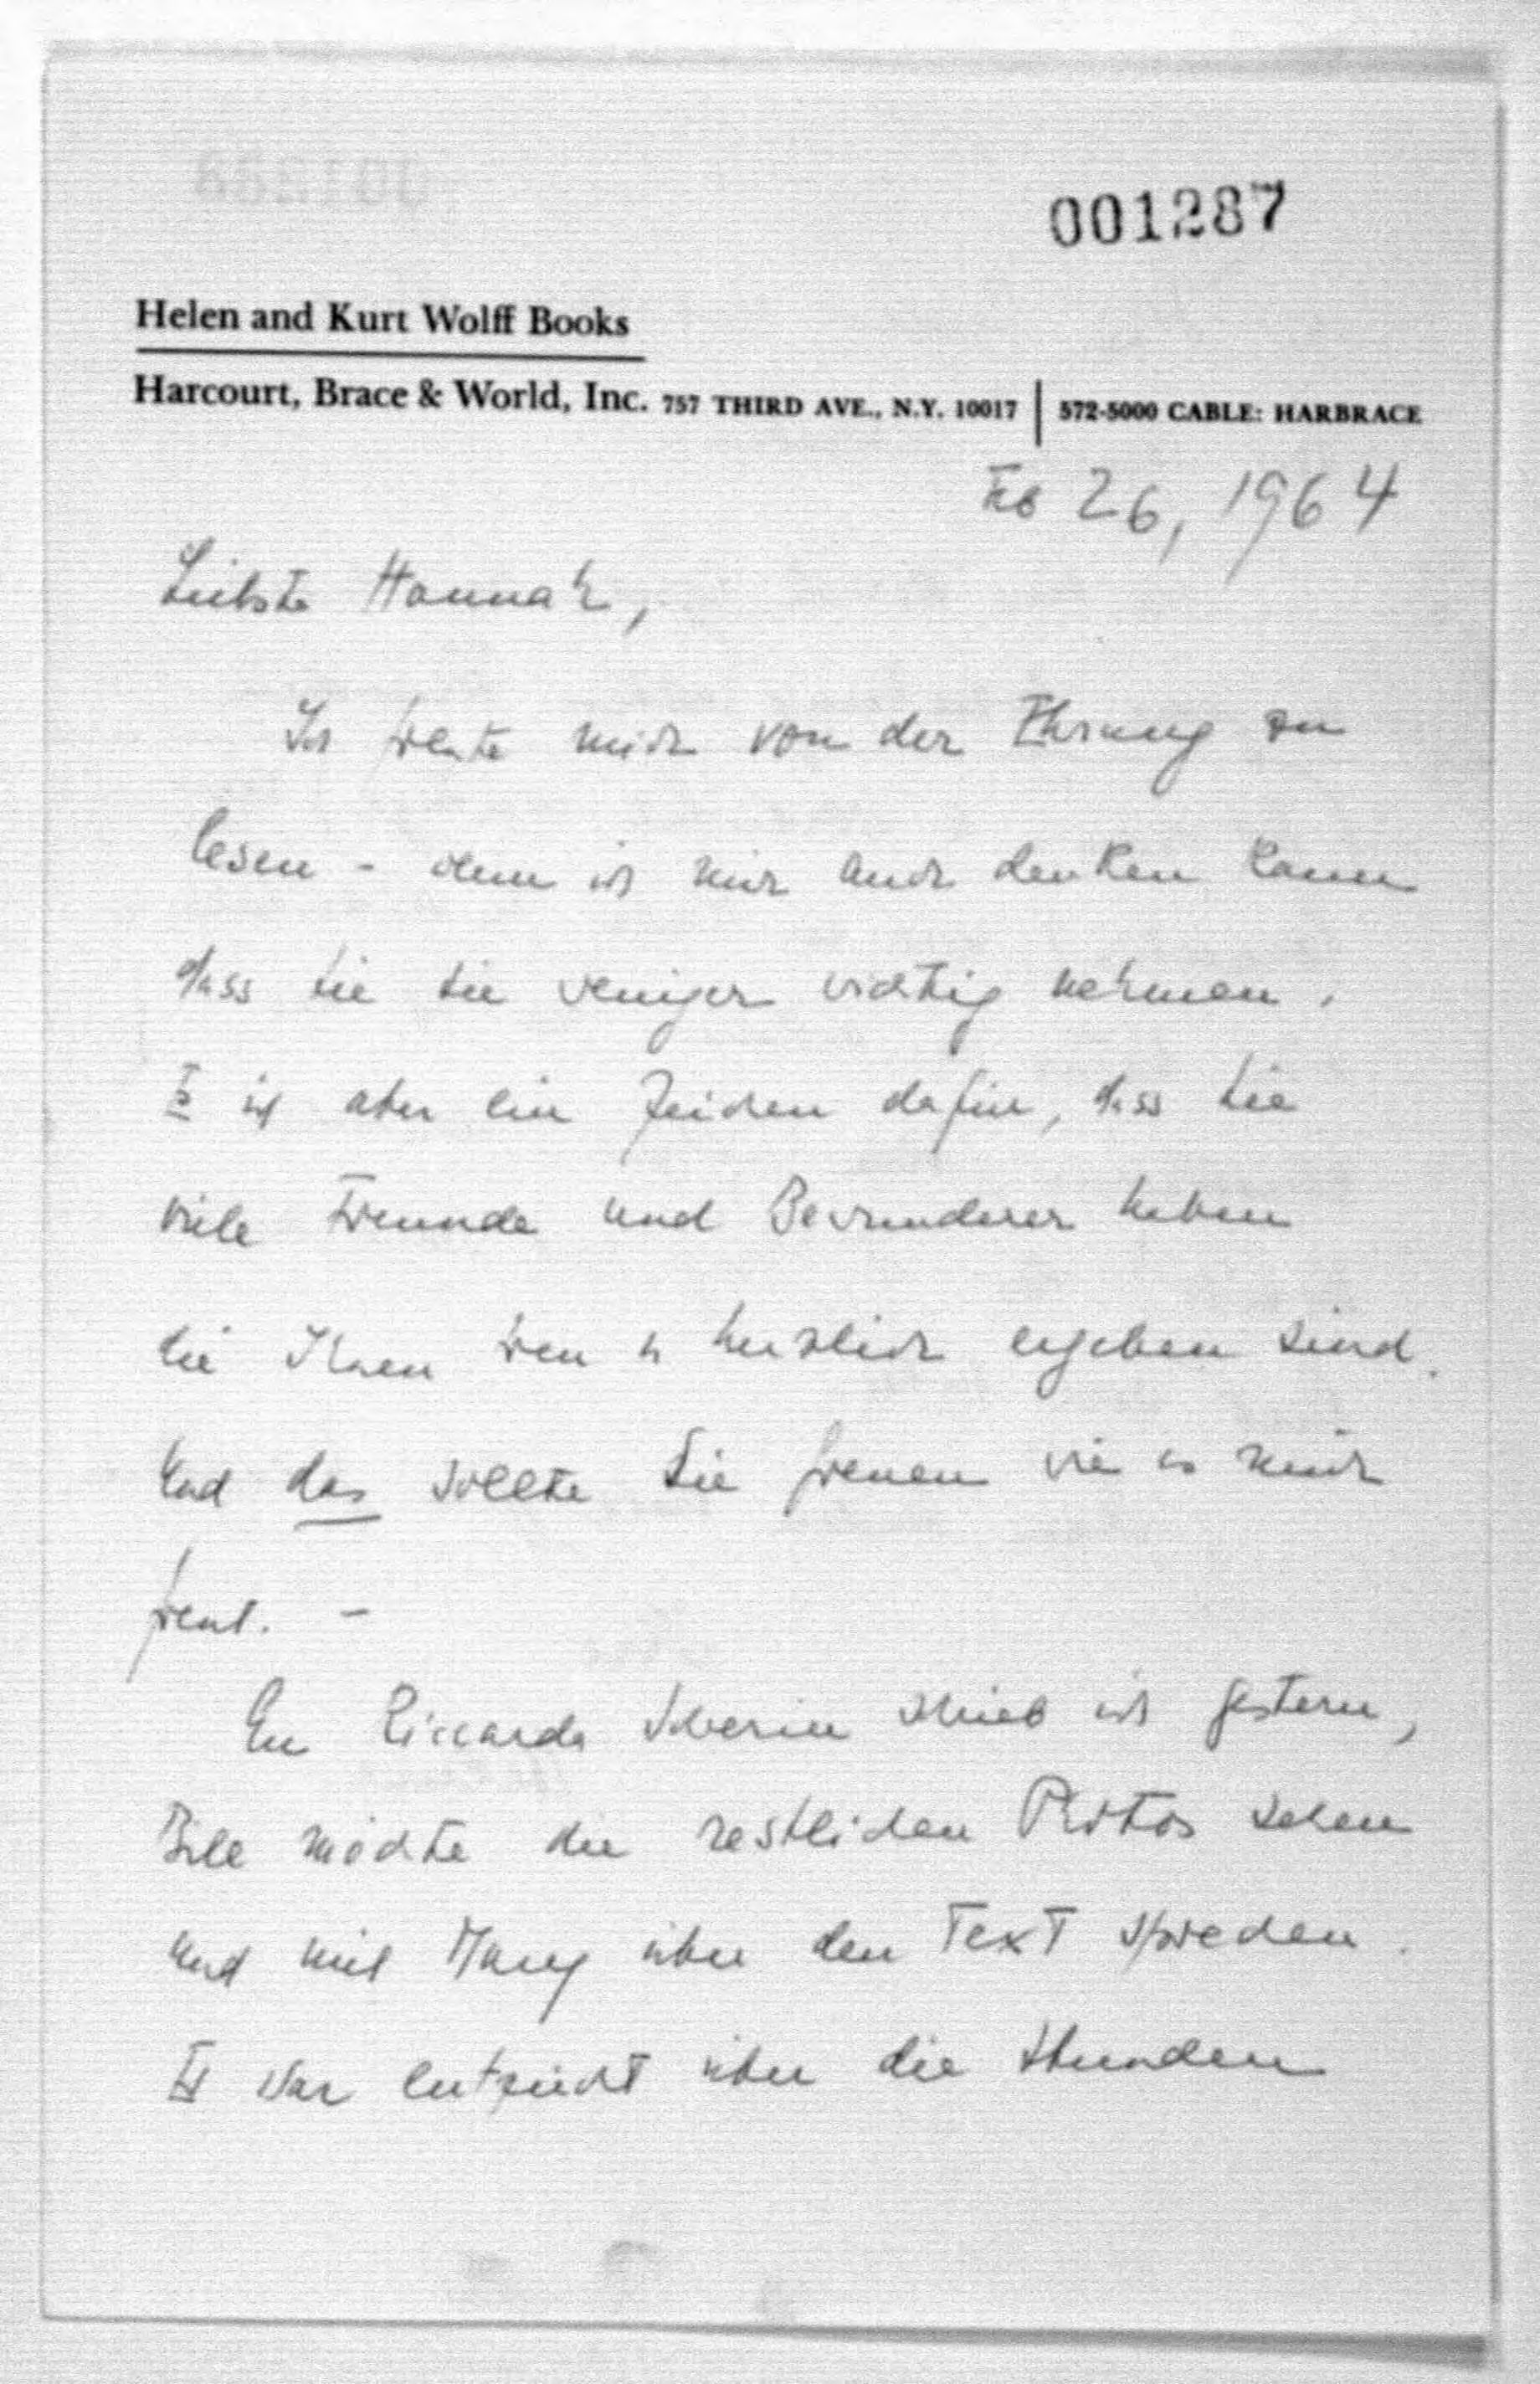 001287
Helen and Kurt Wolff Books
Harcourt, Brace & World, Inc. 757 THIRD AVE., N.Y. 10017 | 572-5000 CABLE: HARBRACE
Feb 26, 1964
Liebste Hannah,
Ich freute mich von der Ehrung zu
lesen - wenn ich mir auch denken kann
dass Sie sie weniger wichtig nehmen.
Es ist aber ein Zeichen dafür, dass Sie
viele Freunde und Bewunderer haben
die Ihnen treu u herzlich ergeben sind.
Und das sollte Sie freuen wie es mich
freut. -
An Riccarda Schwerin schrieb ich gestern,
Bill möchte die restlichen Photos sehen
und mit Mary über den Text sprechen.
Er war entzückt über die Stunden